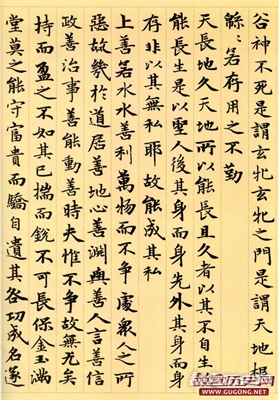 谷神不死是謂玄牝玄牝之門是謂天地根
緜〻若存用之不勤
天長地久天地所以能長且久者以其不自生故
能長生是以聖人後其身而身先外其身而身
存非以其無私耶故能成其私
上善若水水善利萬物而不爭處衆人之所
惡故幾於道居善地心善淵與善人言善信
政善治事善能動善時夫惟不爭故無尤矣
持而盈之不如其已揣而銳不可長保金玉滿
堂莫之能守富貴而驕自遺其咎功成名遂
GUGONG.NET